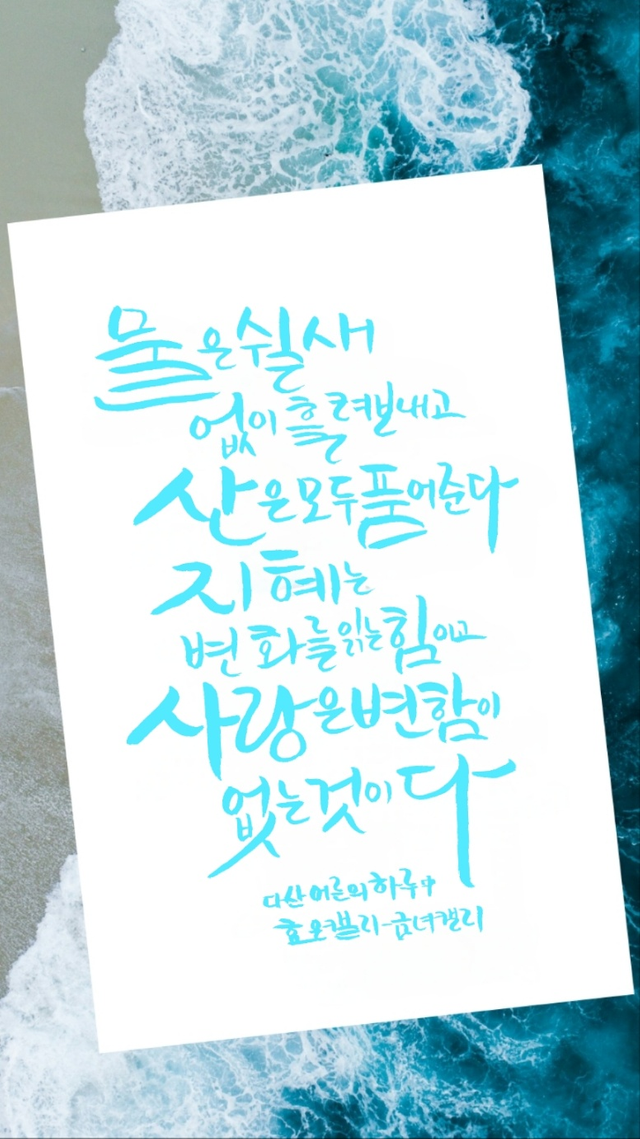 물은 쉴새
없이 흘려보내고
산은 모두 품어준다
지혜는
변화를 읽는 힘이고
사랑은 변함이
없는 것이다
다산 어른의 하루 中
효온캘리-금녀캘리